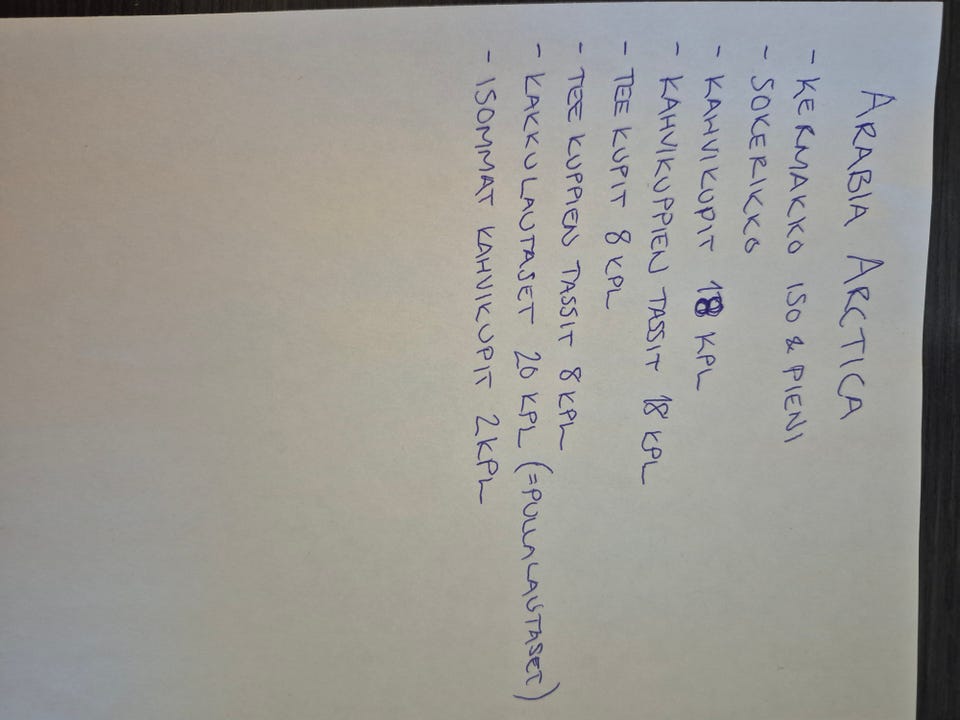 ARABIA ARCTICA
- KERMAKKO ISO & PIENI
- SOKERIKKO
- KAHVIKUPIT 18 KPL
- KAHVIKUPPIEN TASSIT 18 KPL
- TEE KUPIT 8 KPL
- TEE KUPPIEN TASSIT 8 KPL
- KAKKULAUTASET 20 KPL (=PULLALAUTASET)
- ISOMMAT KAHVIKUPIT 2 KPL